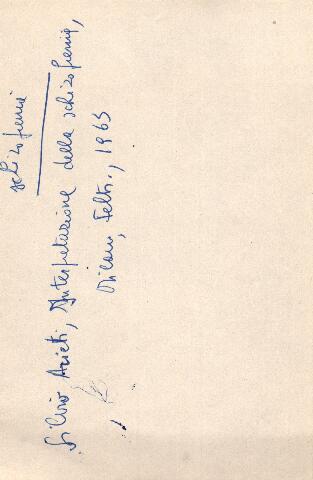 schizofrenia
Silvio Arieti, Interpretazione della schizofrenia,
Milano, Feltr., 1963